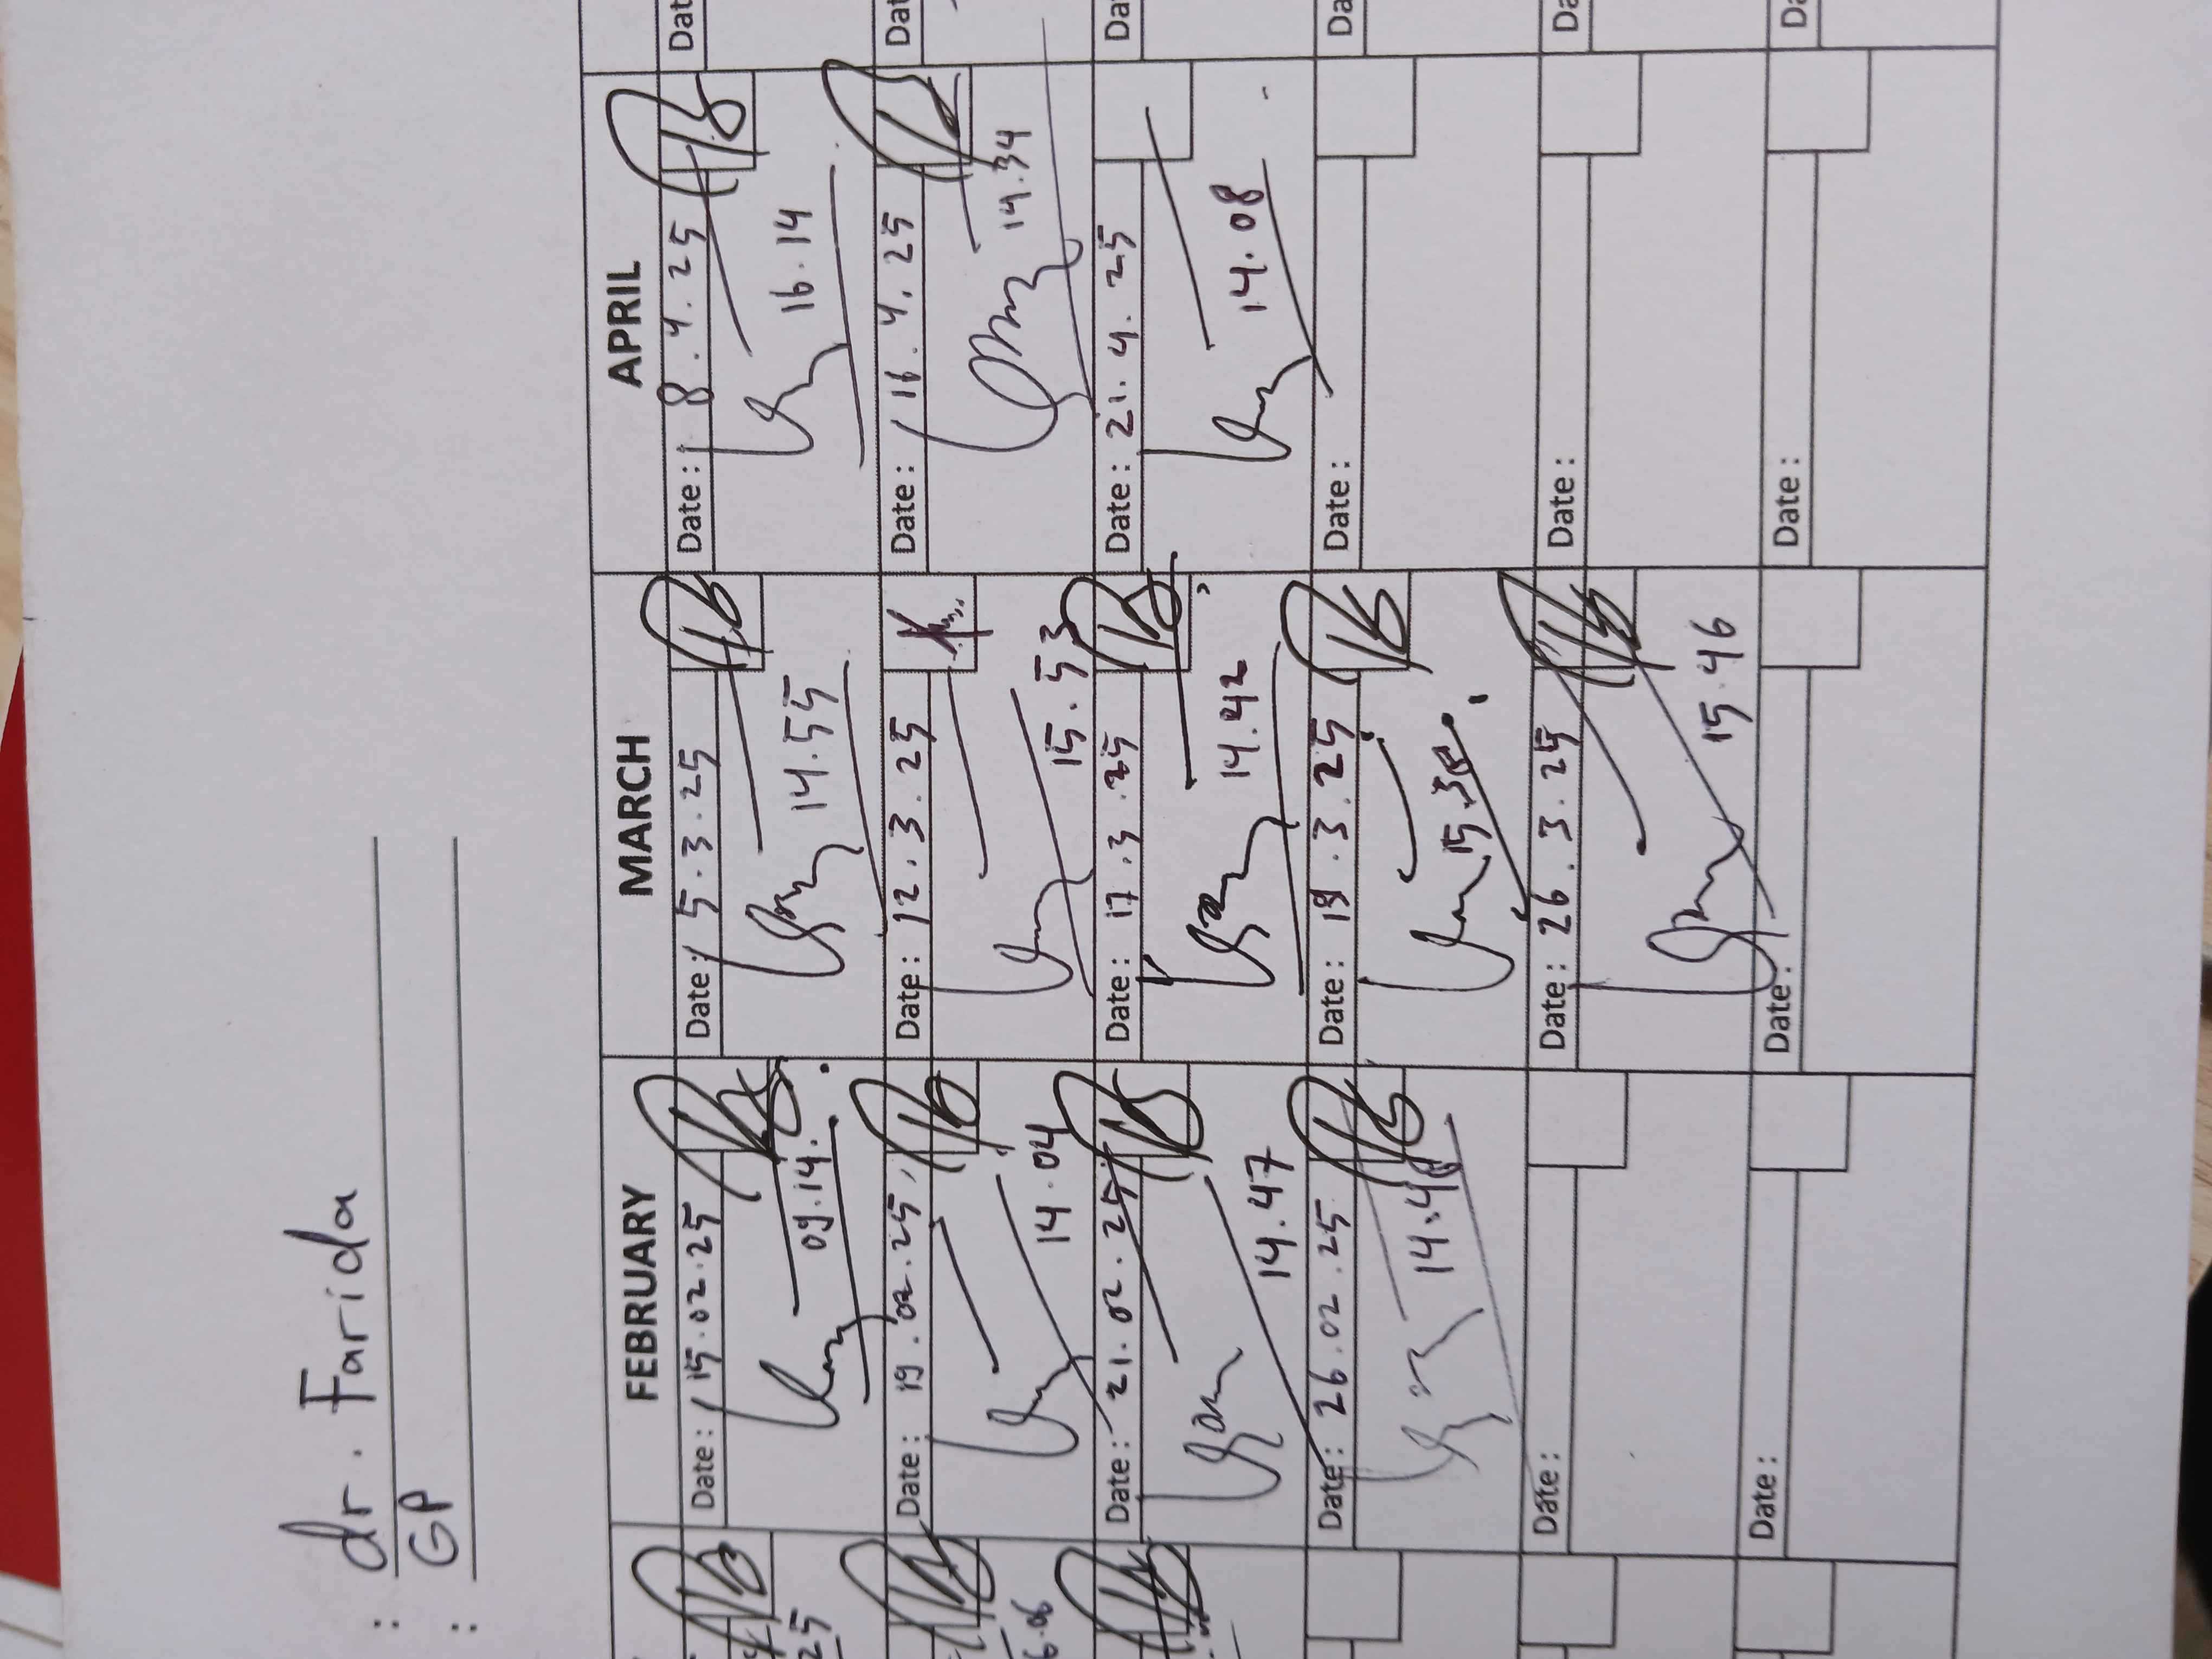 : dr. Farida
: GP
FEBRUARY MARCH APRIL
Date: 15.02.25 Date: 5.3.25 Date: 8.4.25 Dat
25 09.14. 14.55 16.14
Date: 19.02.25 Date: 12.3.25 Date: 16.4.25 Dat
6.06 14.04 15.53 14.34
Date: 21.02.25 Date: 17.3.25 Date: 21.4.25 Da
14.47 14.42 14.08
Date: 26.02.25 Date: 19.3.25 Date: Da
Date: Date: 26.3.25 Date: Da
15.46
Date: Date: Date: Da